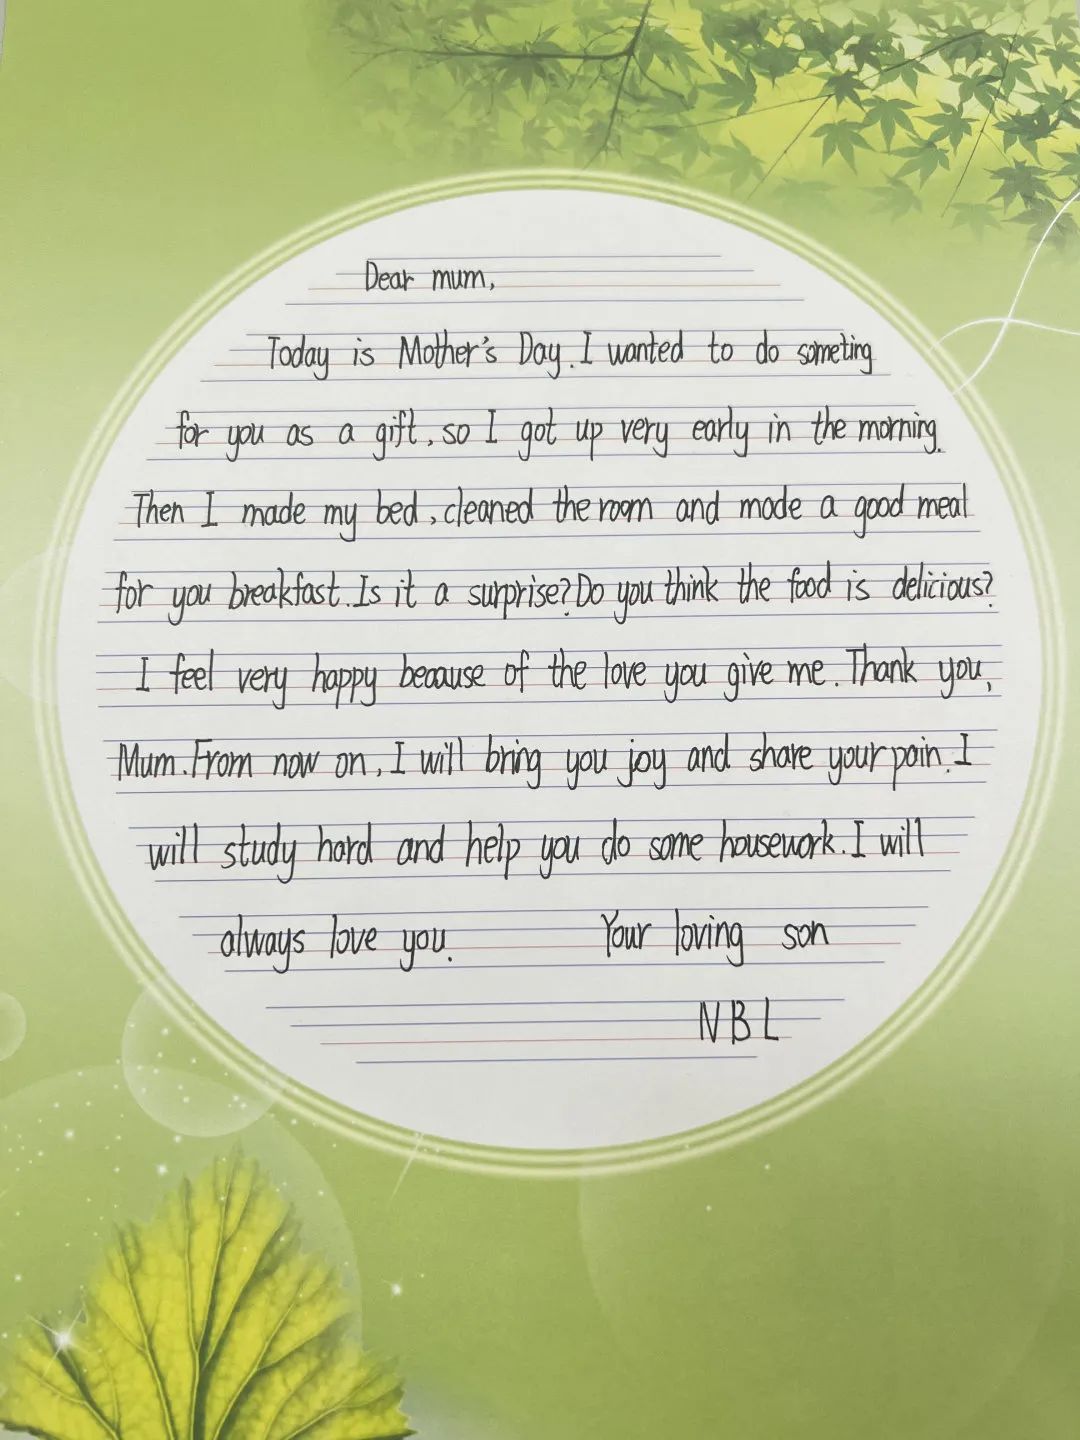 Dear mum,
Today is Mother's Day. I wanted to do someting
for you as a gift, so I got up very early in the morning.
Then I made my bed, cleaned the room and made a good meal
for you breakfast. Is it a surprise? Do you think the food is delicious?
I feel very happy because of the love you give me. Thank you,
Mum. From now on, I will bring you joy and share your pain. I
will study hard and help you do some housework. I will
always love you. Your loving son
NBL